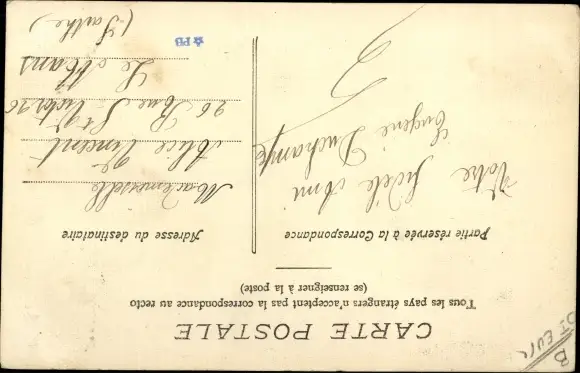 CARTE POSTALE
Tous les pays étrangers n'acceptent pas la correspondance au recto
(se renseigner à la poste)
Partie réservée à la Correspondance
Adresse du destinataire
Votre fidèle Ami
Eugène Duchamp
Mademoiselle
Alice Vincent
96 Rue St Victor 96
Le Mans
(Sarthe)
PB
B